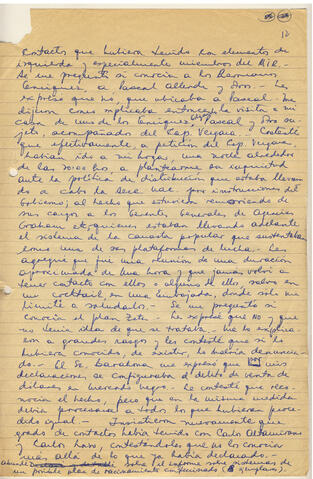 12
contactos que hubiera tenido con elementos de
izquierda y especialmente miembros del MIR.-
Se me preguntó si conocía a los hermanos
Enriquez, a Pascal Allende y Dros.- Le
expresé que no, que ubicaba a Pascal.- Me
dijeron como explicaba entonces la visita a mi
casa de uno de los Enriquez, Pascal y dos su-
jetos, acompañados del Cap. Vergara.- Contesté
que efectivamente, a petición del Cap. Vergara
habían ido a mi hogar, una noche alrededor
de las a plantearme su inquietud
ante la política de distribución que estaba llevan-
do a cabo la Secr. Nac. por instrucciones del
Gobierno; al hecho que estuvieran removiendo de
sus cargos a los Gerentes Generales de Agencias
Graham etc, quienes estaban llevando adelante
el sistema de la canasta popular que sustentaba
como una de sus plataformas de lucha.- Les
agregué que fue una reunión de una duración
aproximada de una hora y que jamás volví a
tener contacto con ellos o alguno de ellos, salvo en
un cocktail en una embajada, donde solo me
limité a saludarlos.- Se me preguntó si
conocía el plan Zeta.- Le expresé que NO y que
no tenía idea de que se trataba.- Me lo explica-
ron a grandes rasgos y les contesté que si lo
hubiera conocido, de existir, lo habría denuncia-
do.- El Sr. Barahona me expresó que por mis
declaraciones se configuraba el delito de venta de
dólares en mercado negro.- Le contesté que reco-
nocía el hecho, pero que en la misma medida
debía procesarse a todo lo que hubieran proce-
dido igual.- Insistieron nuevamente que
grado de contactos había tenido con Carlos Altamirano
y Carlos Lazo, contestándoles que no los conocía
más allá de lo que ya había declarado.-
sobre el informe sobre sistemas de
un posible plan de racionamiento